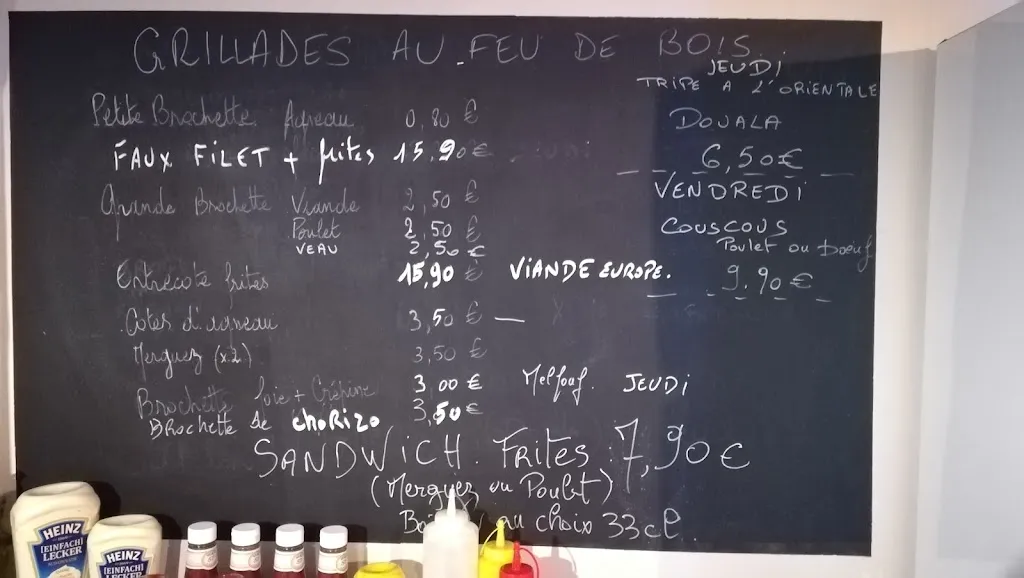 GRILLADES AU FEU DE BOIS.
Petite Brochette Agneau 0,80 €
FAUX FILET + frites 15,90 €
Grande Brochette Viande 2,50 €
Poulet 2,50 €
VEAU 2,50 €
Entrecote frites 15,90 € VIANDE EUROPE.
Cotes d'agneau 3,50 € —
Merguez (x2) 3,50 €
Brochette foie + Crépine 3 00 € Melfouf. JEUDI
Brochette de CHORIZO 3,50 €
SANDWICH. Frites : 7,90 €
(Merguez ou Poulet)
au choix 33cl.
JEUDI
TRIPE A L'ORIENTALE
DOUALA
6,50 €
VENDREDI
COUSCOUS
Poulet ou Boeuf
9.90 €
HEINZ
[EINFACH]
LECKER
HEINZ
[EINFACH]
LECKER